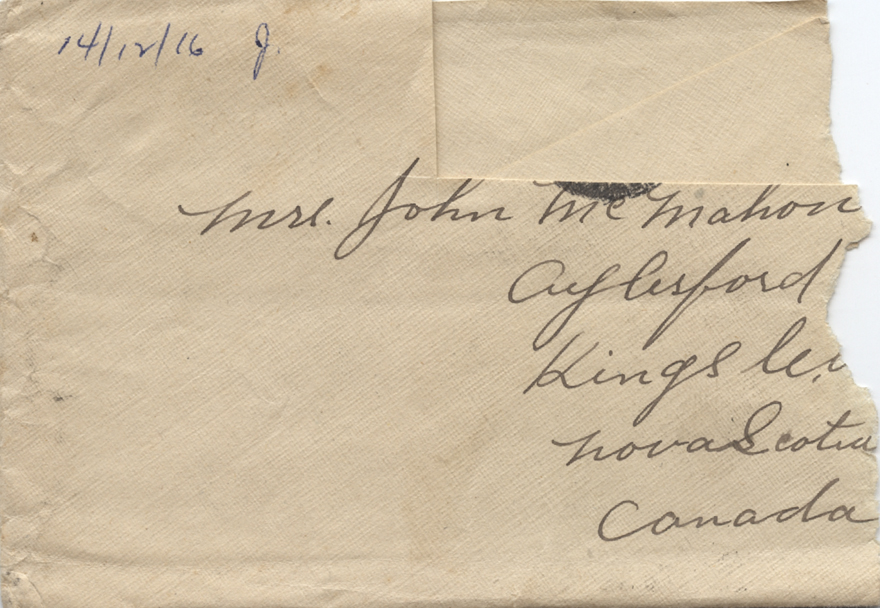 14/12/16 J.
Mrs. John McMahon
Aylesford
Kings Co.
Nova Scotia
Canada